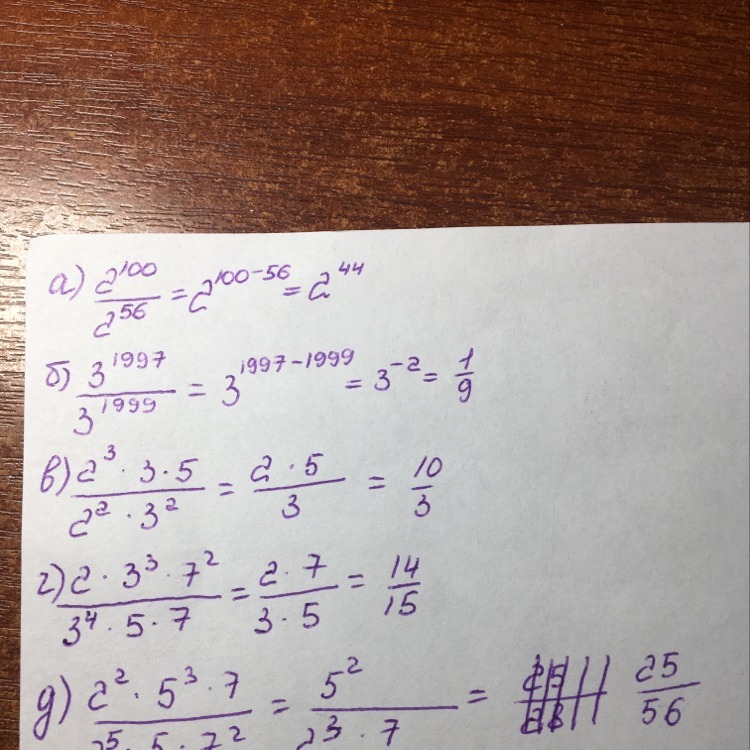 а) 2^100 / 2^56 = 2^100-56 = 2^44
б) 3^1997 / 3^1999 = 3^1997-1999 = 3^-2 = 1/9
в) 2^3 · 3 · 5 / 2^2 · 3^2 = 2 · 5 / 3 = 10/3
г) 2 · 3^3 · 7^2 / 3^4 · 5 · 7 = 2 · 7 / 3 · 5 = 14/15
д) 2^2 · 5^3 · 7 / 2^5 · 5 · 7^2 = 5^2 / 2^3 · 7 = 25/56